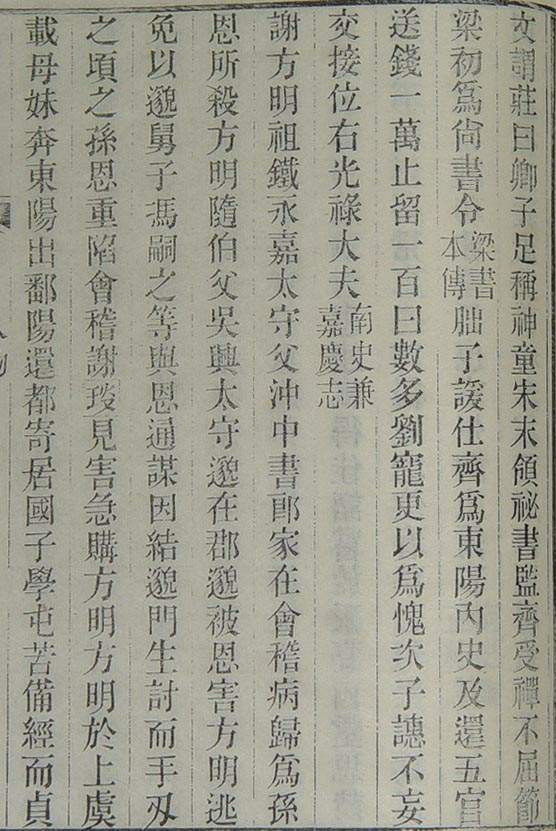 文謂莊曰卿子足稱神童宋末領祕書監齊受禪不屈節
梁初爲尙書令梁書本傳朏子諼仕齊爲東陽內史及還五官
送錢一萬止留一百曰數多劉寵更以爲愧次子譓不妄
交接位右光祿大夫南史兼嘉慶志
謝方明祖鐵永嘉太守父沖中書郎家在會稽病歸爲孫
恩所殺方明隨伯父吳興太守邈在郡邈被恩害方明逃
免以邈舅子馮嗣之等與恩通謀因結邈門生討而手刃
之頃之孫恩重陷會稽謝琰見害急購方明方明於上虞
載母妹奔東陽出鄱陽還都寄居國子學屯苦備經而貞